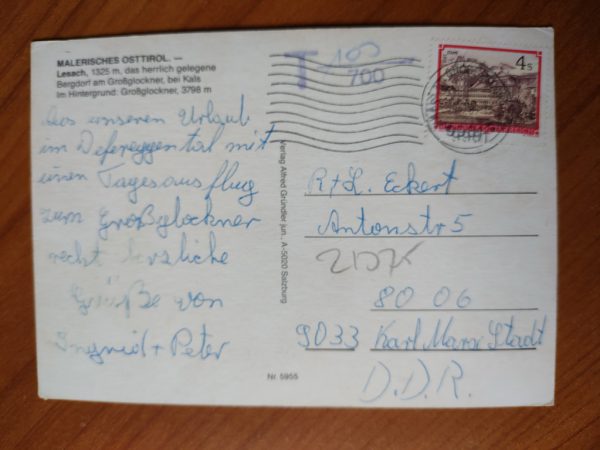 MALERISCHES OSTTIROL. —
Lesach, 1325 m, das herrlich gelegene
Bergdorf am Großglockner, bei Kals
Im Hintergrund: Großglockner, 3798 m
Aus unseren Urlaub
im Defereggental mit
einen Tagesausflug
zum Großglockner
recht herzliche
Grüße von
Ingrid + Peter
Verlag Alfred Gründler jun., A-5020 Salzburg
Nr. 5955
T
700
4 S
R+L. Eckert
Antonstr 5
80 06
9033 Karl Marx Stadt
D.D.R.